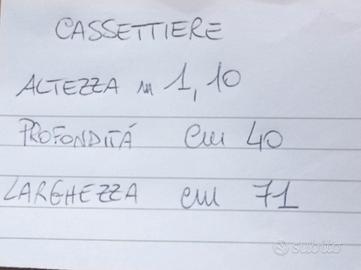 CASSETTIERE
ALTEZZA m 1,10
PROFONDITÁ cm 40
LARGHEZZA cm 71
subito